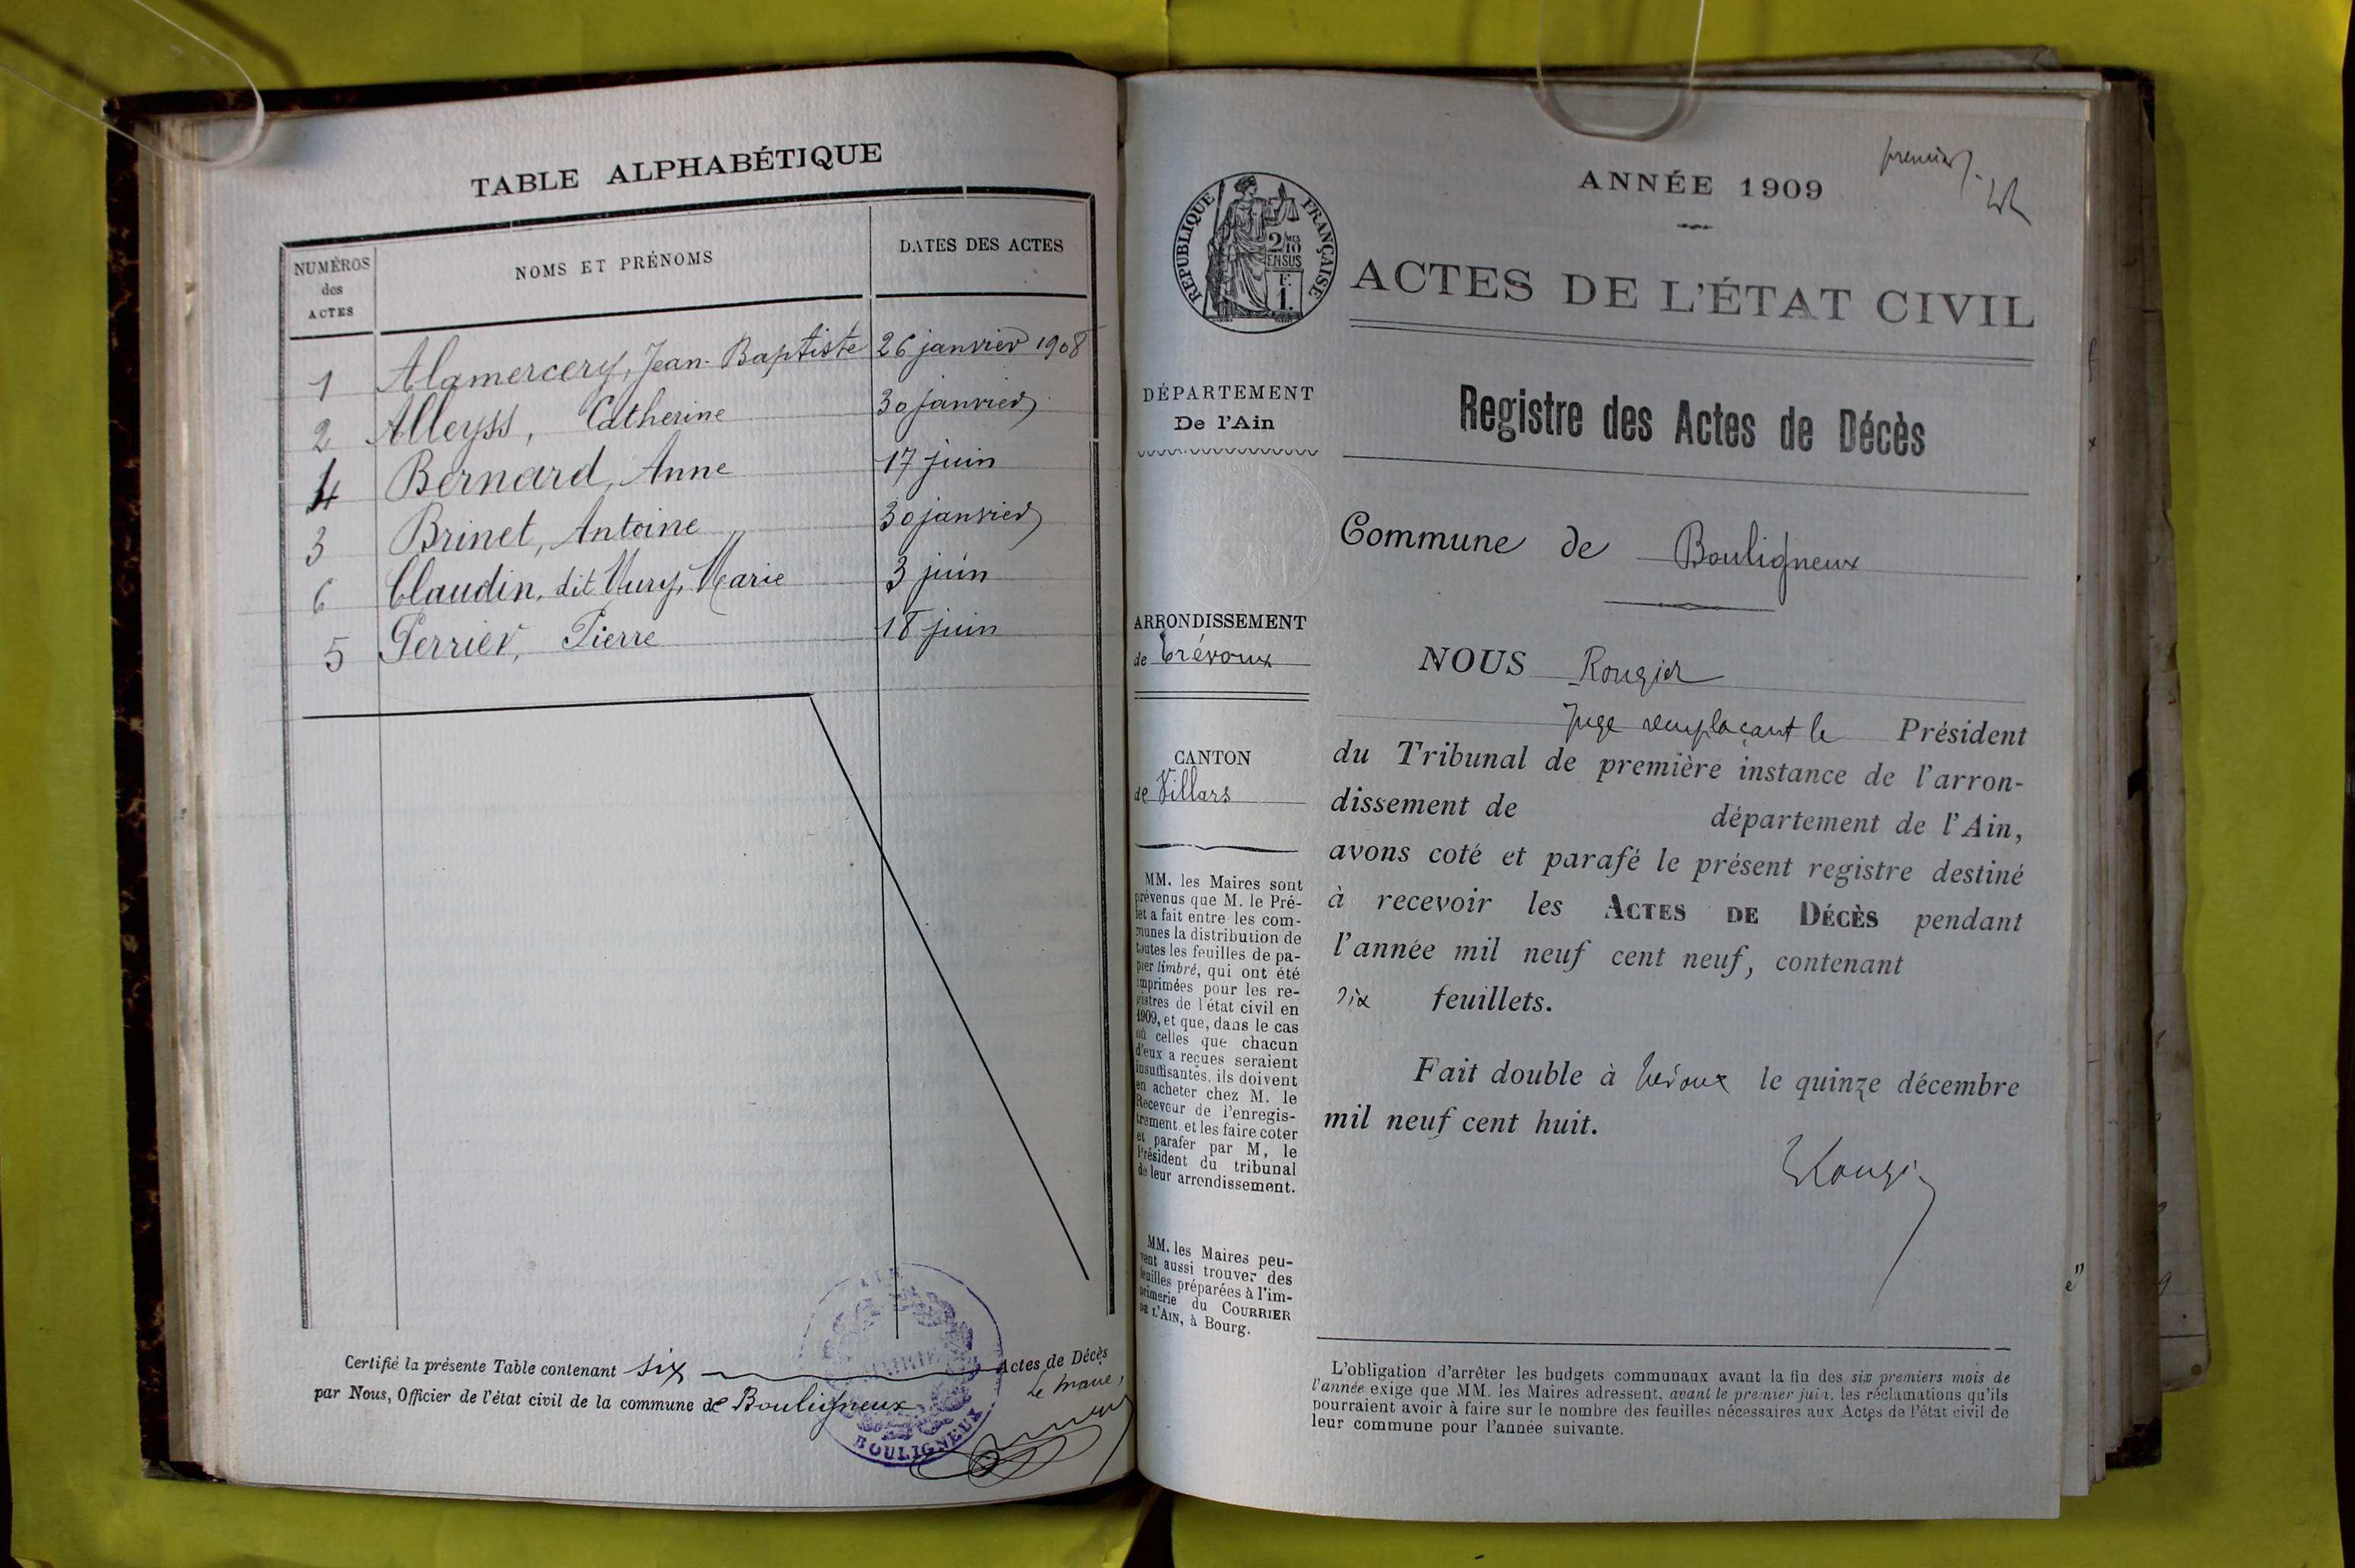 TABLE ALPHABÉTIQUE
NUMÉROS
des
ACTES
NOMS ET PRÉNOMS
DATES DES ACTES
1 Alamercery, Jean-Baptiste 26 janvier 1908
2 Alleyss, Catherine 30 janvier
4 Bernard, Anne 17 juin
3 Brinet, Antoine 30 janvier
6 Claudin, dit Mury, Marie 3 juin
5 Perrier, Pierre 18 juin
Certifié la présente Table contenant six Actes de Décès
par Nous, Officier de l'état civil de la commune de Bouligneux
Le Maire,
MAIRIE
BOULIGNEUX
premier
ANNÉE 1909
RÉPUBLIQUE FRANÇAISE
2/10 MES
EN SUS
F.
1.
ACTES DE L'ÉTAT CIVIL
DÉPARTEMENT
De l'Ain
ARRONDISSEMENT
de Trévoux
CANTON
de Villars
MM. les Maires sont
prévenus que M. le Pré-
fet a fait entre les com-
munes la distribution de
toutes les feuilles de pa-
pier timbré, qui ont été
imprimées pour les re-
gistres de l'état civil en
1909, et que, dans le cas
où celles que chacun
d'eux a reçues seraient
insuffisantes, ils doivent
en acheter chez M. le
Receveur de l'enregis-
trement et les faire coter
et parafer par M, le
Président du tribunal
de leur arrondissement.
MM. les Maires peu-
vent aussi trouver des
feuilles préparées à l'im-
primerie du COURRIER
DE L'AIN, à Bourg.
Registre des Actes de Décès
Commune de Bouligneux
NOUS Rougier
Juge remplaçant le Président
du Tribunal de première instance de l'arron-
dissement de département de l'Ain,
avons coté et parafé le présent registre destiné
à recevoir les ACTES DE DÉCÈS pendant
l'année mil neuf cent neuf, contenant
six feuillets.
Fait double à Trévoux le quinze décembre
mil neuf cent huit.
Rougier
L'obligation d'arrêter les budgets communaux avant la fin des six premiers mois de
l'année exige que MM. les Maires adressent, avant le premier juin, les réclamations qu'ils
pourraient avoir à faire sur le nombre des feuilles nécessaires aux Actes de l'état civil de
leur commune pour l'année suivante.